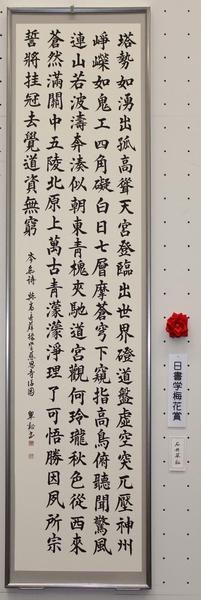 塔勢如湧出孤高聳天宮登臨出世界磴道盤虛空突兀壓神州
崢嶸如鬼工四角礙白日七層摩蒼穹下窺指高鳥俯聽聞驚風
連山若波濤奔湊似朝東青槐夾馳道宮觀何玲瓏秋色從西來
蒼然滿關中五陵北原上萬古青濛濛淨理了可悟勝因夙所宗
誓將挂冠去覺道資無窮
日書学梅花賞